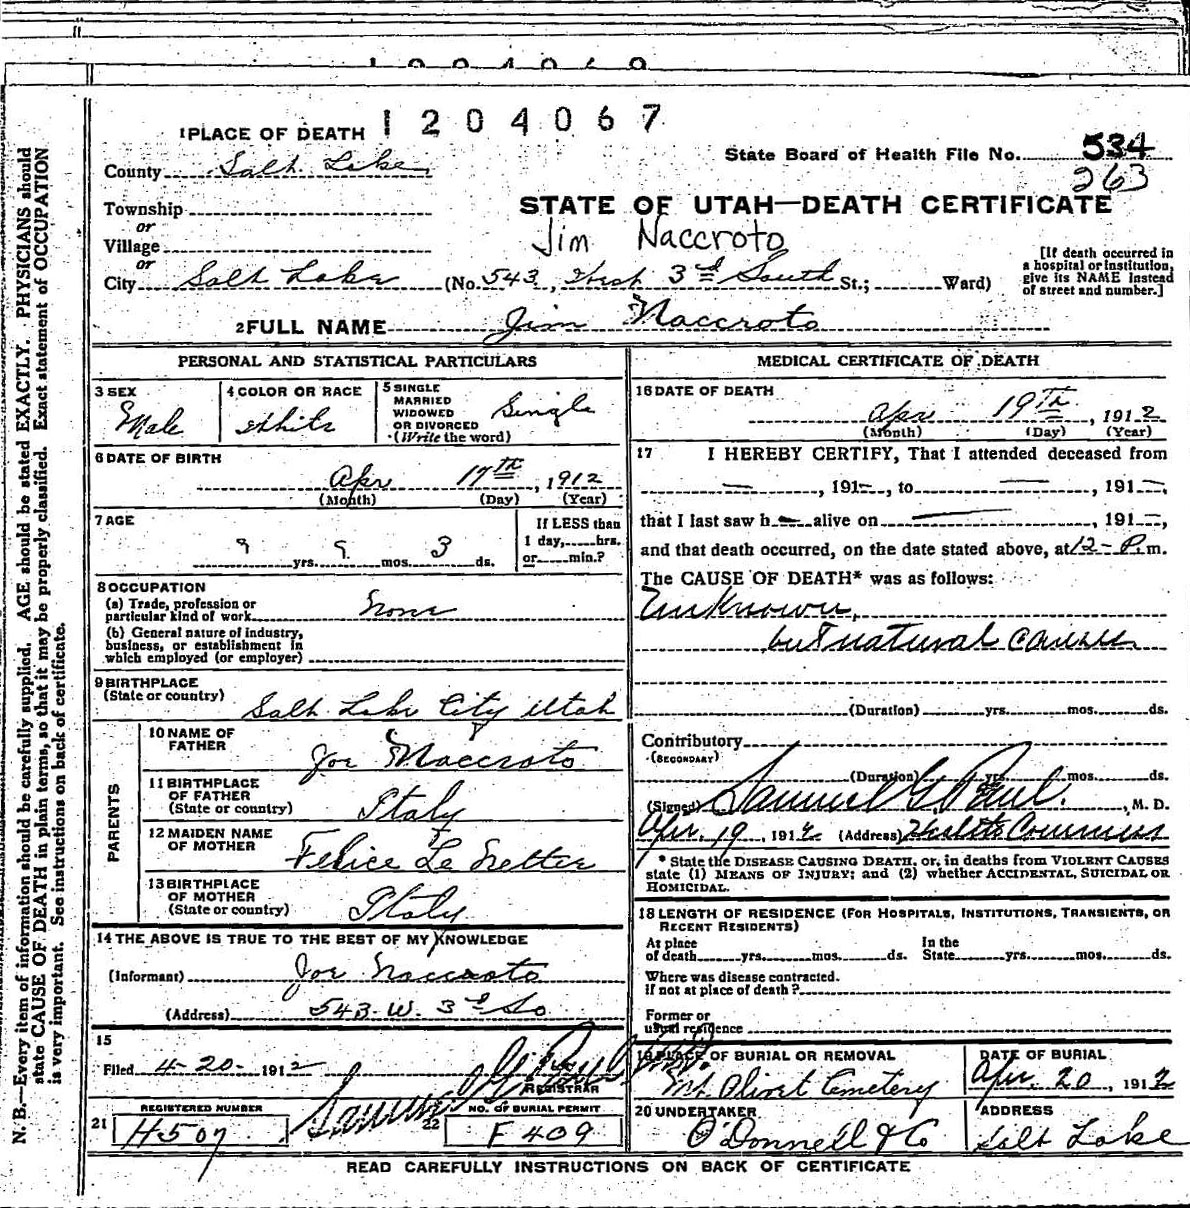 1204069
1 PLACE OF DEATH 1204067
County Salt Lake
State Board of Health File No. 534
263
Township
or
Village
or
City Salt Lake
STATE OF UTAH—DEATH CERTIFICATE
Jim Naccroto
(No. 543, West 3rd South St.; Ward)
[If death occurred in a hospital or institution, give its NAME instead of street and number.]
2 FULL NAME Jim Naccroto
PERSONAL AND STATISTICAL PARTICULARS
3 SEX
Male
4 COLOR OR RACE
White
5 SINGLE
MARRIED
WIDOWED
OR DIVORCED
(Write the word)
Single
6 DATE OF BIRTH
Apr 17th, 1912
(Month) (Day) (Year)
7 AGE
? yrs. ? mos. 3 ds.
If LESS than
1 day, hrs.
or min.?
8 OCCUPATION
(a) Trade, profession or
particular kind of work None
(b) General nature of industry,
business, or establishment in
which employed (or employer)
9 BIRTHPLACE
(State or country)
Salt Lake City Utah
PARENTS
10 NAME OF
FATHER
Joe Naccroto
11 BIRTHPLACE
OF FATHER
(State or country)
Italy
12 MAIDEN NAME
OF MOTHER
13 BIRTHPLACE
OF MOTHER
(State or country)
Italy
14 THE ABOVE IS TRUE TO THE BEST OF MY KNOWLEDGE
(Informant) Joe Naccroto
(Address) 543 W. 3rd So
15
Filed 4-20- 1912
REGISTRAR
REGISTERED NUMBER
21 H507
NO. OF BURIAL PERMIT
22 F409
MEDICAL CERTIFICATE OF DEATH
16 DATE OF DEATH
Apr 19th, 1912
(Month) (Day) (Year)
17 I HEREBY CERTIFY, That I attended deceased from
— , 191—, to — , 191—,
that I last saw h— alive on — , 191—,
and that death occurred, on the date stated above, at 12-P.m.
The CAUSE OF DEATH* was as follows:
Unknown,
but natural causes
(Duration) yrs. mos. ds.
Contributory
(SECONDARY)
(Duration) yrs. mos. ds.
(Signed) Samuel G Paul, M. D.
Apr. 19, 1912 (Address) Health Commiss
* State the DISEASE CAUSING DEATH, or, in deaths from VIOLENT CAUSES
state (1) MEANS OF INJURY; and (2) whether ACCIDENTAL, SUICIDAL OR
HOMICIDAL.
18 LENGTH OF RESIDENCE (FOR HOSPITALS, INSTITUTIONS, TRANSIENTS, OR
RECENT RESIDENTS)
At place
of death yrs. mos. ds.
In the
State yrs. mos. ds.
Where was disease contracted.
If not at place of death?
Former or
usual residence
19 PLACE OF BURIAL OR REMOVAL
Mt. Olivet Cemetery
DATE OF BURIAL
Apr. 20, 1912
20 UNDERTAKER
O'Donnell & Co
ADDRESS
Salt Lake
READ CAREFULLY INSTRUCTIONS ON BACK OF CERTIFICATE
N. B.—Every item of information should be carefully supplied. AGE should be stated EXACTLY. PHYSICIANS should
state CAUSE OF DEATH in plain terms, so that it may be properly classified. Exact statement of OCCUPATION
is very important. See instructions on back of certificate.